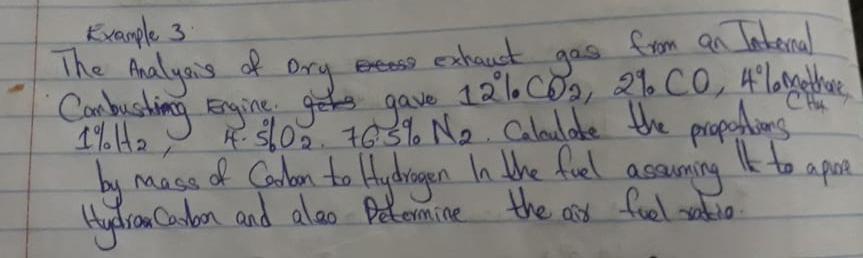 Example 3
The Analysis of Dry excess exhaust gas from an Internal
Combustiong Engine. gets gave 12% CO2, 2% CO, 4% Methane,
CH4
1% H2, 4.5% O2. 76.5% N2. Calculate the proportions
by mass of Carbon to Hydrogen In the fuel assuming It to a pure
HydroCarbon and also Determine the air fuel ratio.